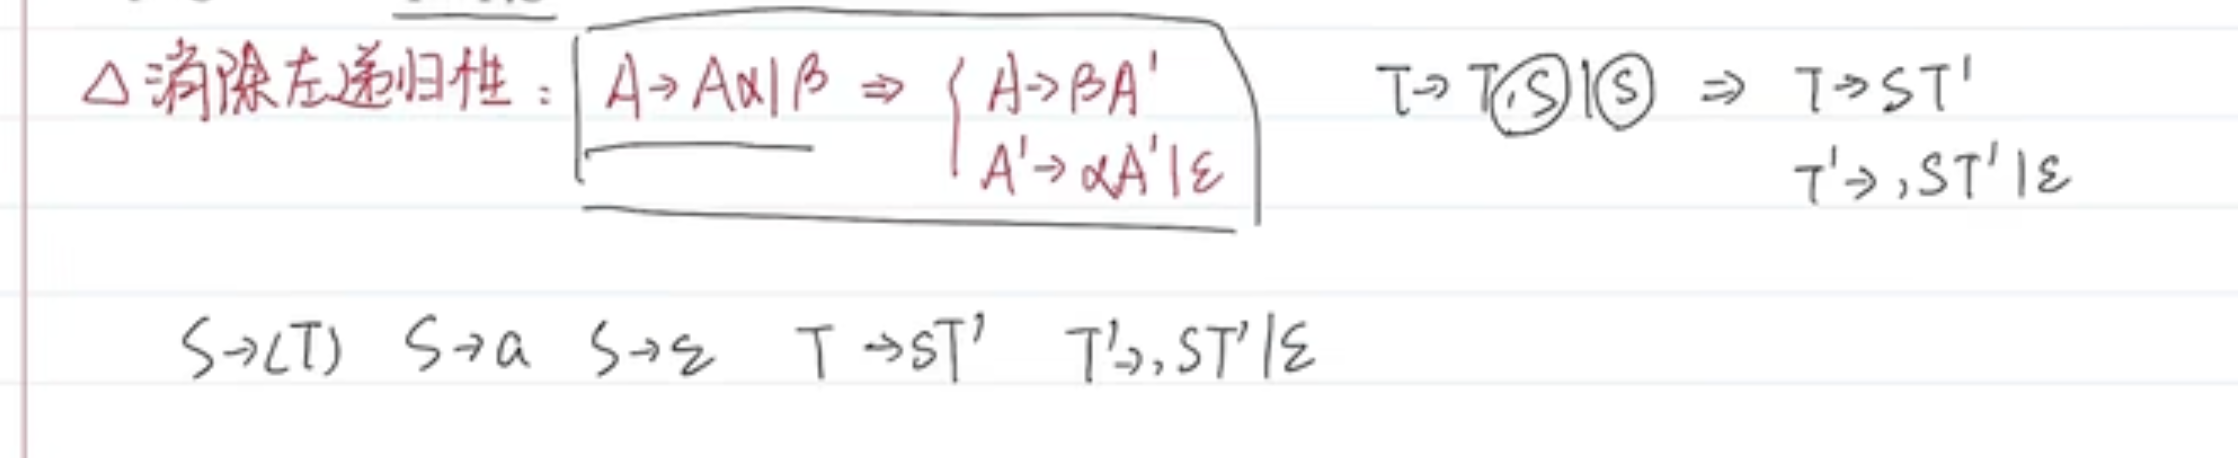 △消除左递归性: A→Aα|β ⇒ { A→βA' T→T,S|S ⇒ T→ST'
A'→αA'|ε T'→,ST'|ε
S→(T) S→a S→ε T→ST' T'→,ST'|ε